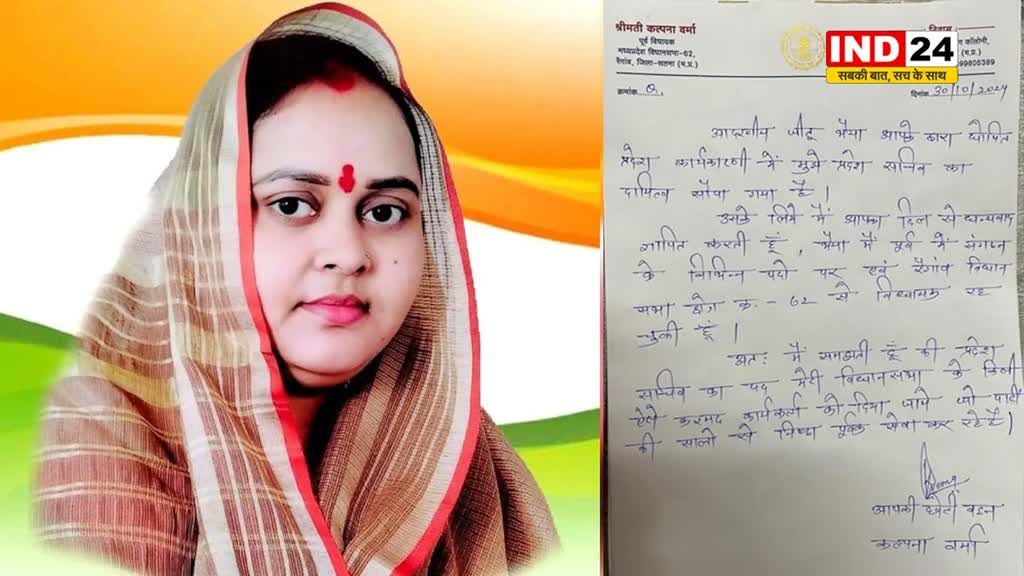 श्रीमती कल्पना वर्मा
पूर्व विधायक
मध्यप्रदेश विधानसभा-62,
रैगांव, जिला-सतना (म.प्र.)
निवास
कॉलोनी,
(म.प्र.)
99806389
IND24
सबकी बात, सच के साथ
क्रमांक Q.
दिनांक 30/10/2024
आदरणीय जीटू भैया आपके द्वारा घोषित
प्रदेश कार्यकारणी में मुझे प्रदेश सचिव का
दायित्व सौंपा गया है।
उसके लिये मैं आपका दिल से धन्यवाद
ज्ञापित करती हूँ, भैया मैं पूर्व में संगठन
के विभिन्न पदो पर एवं रैगांव विधान
सभा क्षेत्र क्र - 62 से विधायक रह
चुकी हूँ।
अतः मैं समझती हूँ की प्रदेश
सचिव का पद मेरी विधानसभा के किसी
ऐसे कर्मठ कार्यकर्ता को दिया जाये जो पार्टी
की सालो से निष्ठा पूर्वक सेवा कर रहे है।
आपकी छोटी बहन
कल्पना वर्मा